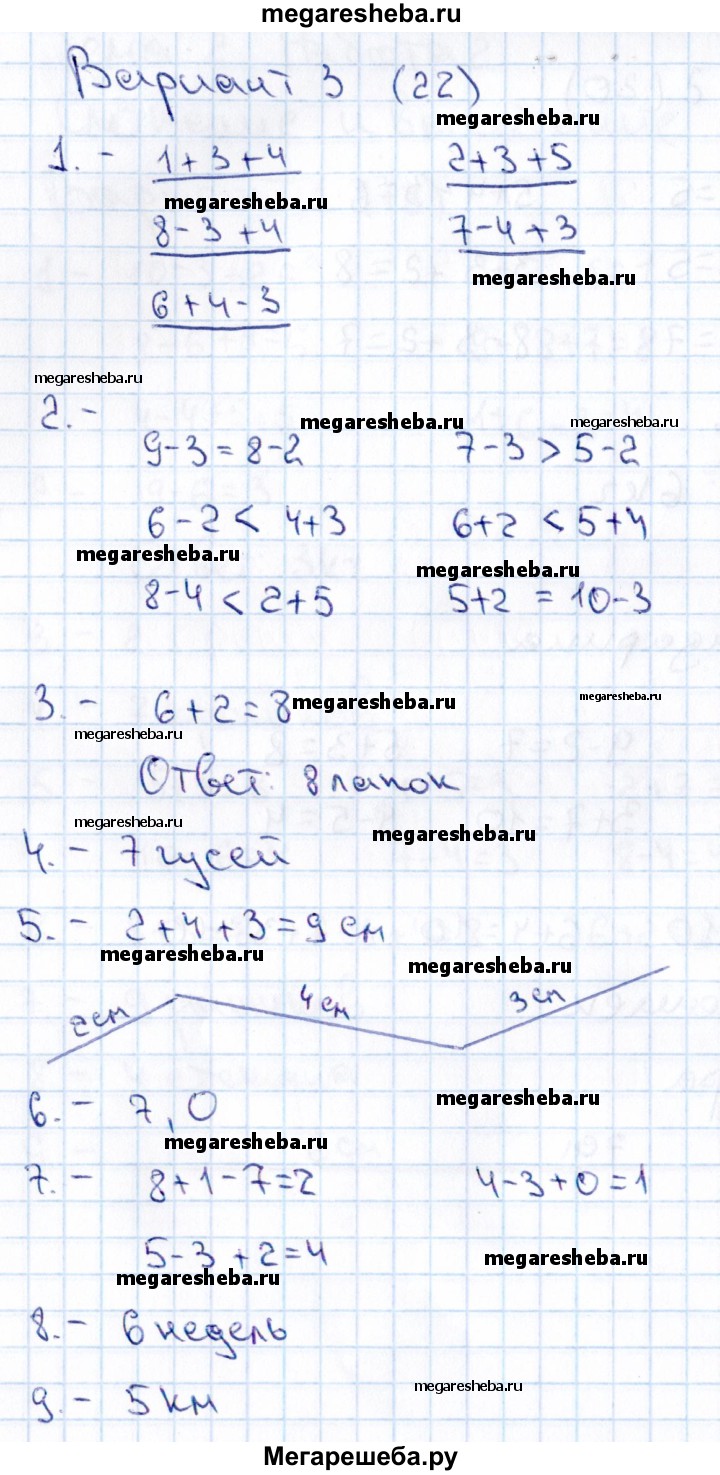 megaresheba.ru
Вариант 3 (22)
megaresheba.ru
1. - 1+3+4 2+3+5
megaresheba.ru
8-3+4 7-4+3
megaresheba.ru
6+4-3
megaresheba.ru
2. -
megaresheba.ru megaresheba.ru
9-3=8-2 7-3>5-2
6-2< 4+3 6+2 <5+4
megaresheba.ru megaresheba.ru
8-4<2+5 5+2 = 10-3
3. - 6+2=8 megaresheba.ru megaresheba.ru
megaresheba.ru
Ответ: 8 лапок
megaresheba.ru megaresheba.ru
4. - 7 гусей
5. - 2+4+3=9 см
megaresheba.ru megaresheba.ru
2 см 4 см 3 см
6. - 7, 0 megaresheba.ru
megaresheba.ru
7. - 8+1-7=2 4-3+0=1
5-3+2=4 megaresheba.ru
megaresheba.ru
8. - 6 недель
9. - 5 км megaresheba.ru
Мегарешеба.ру